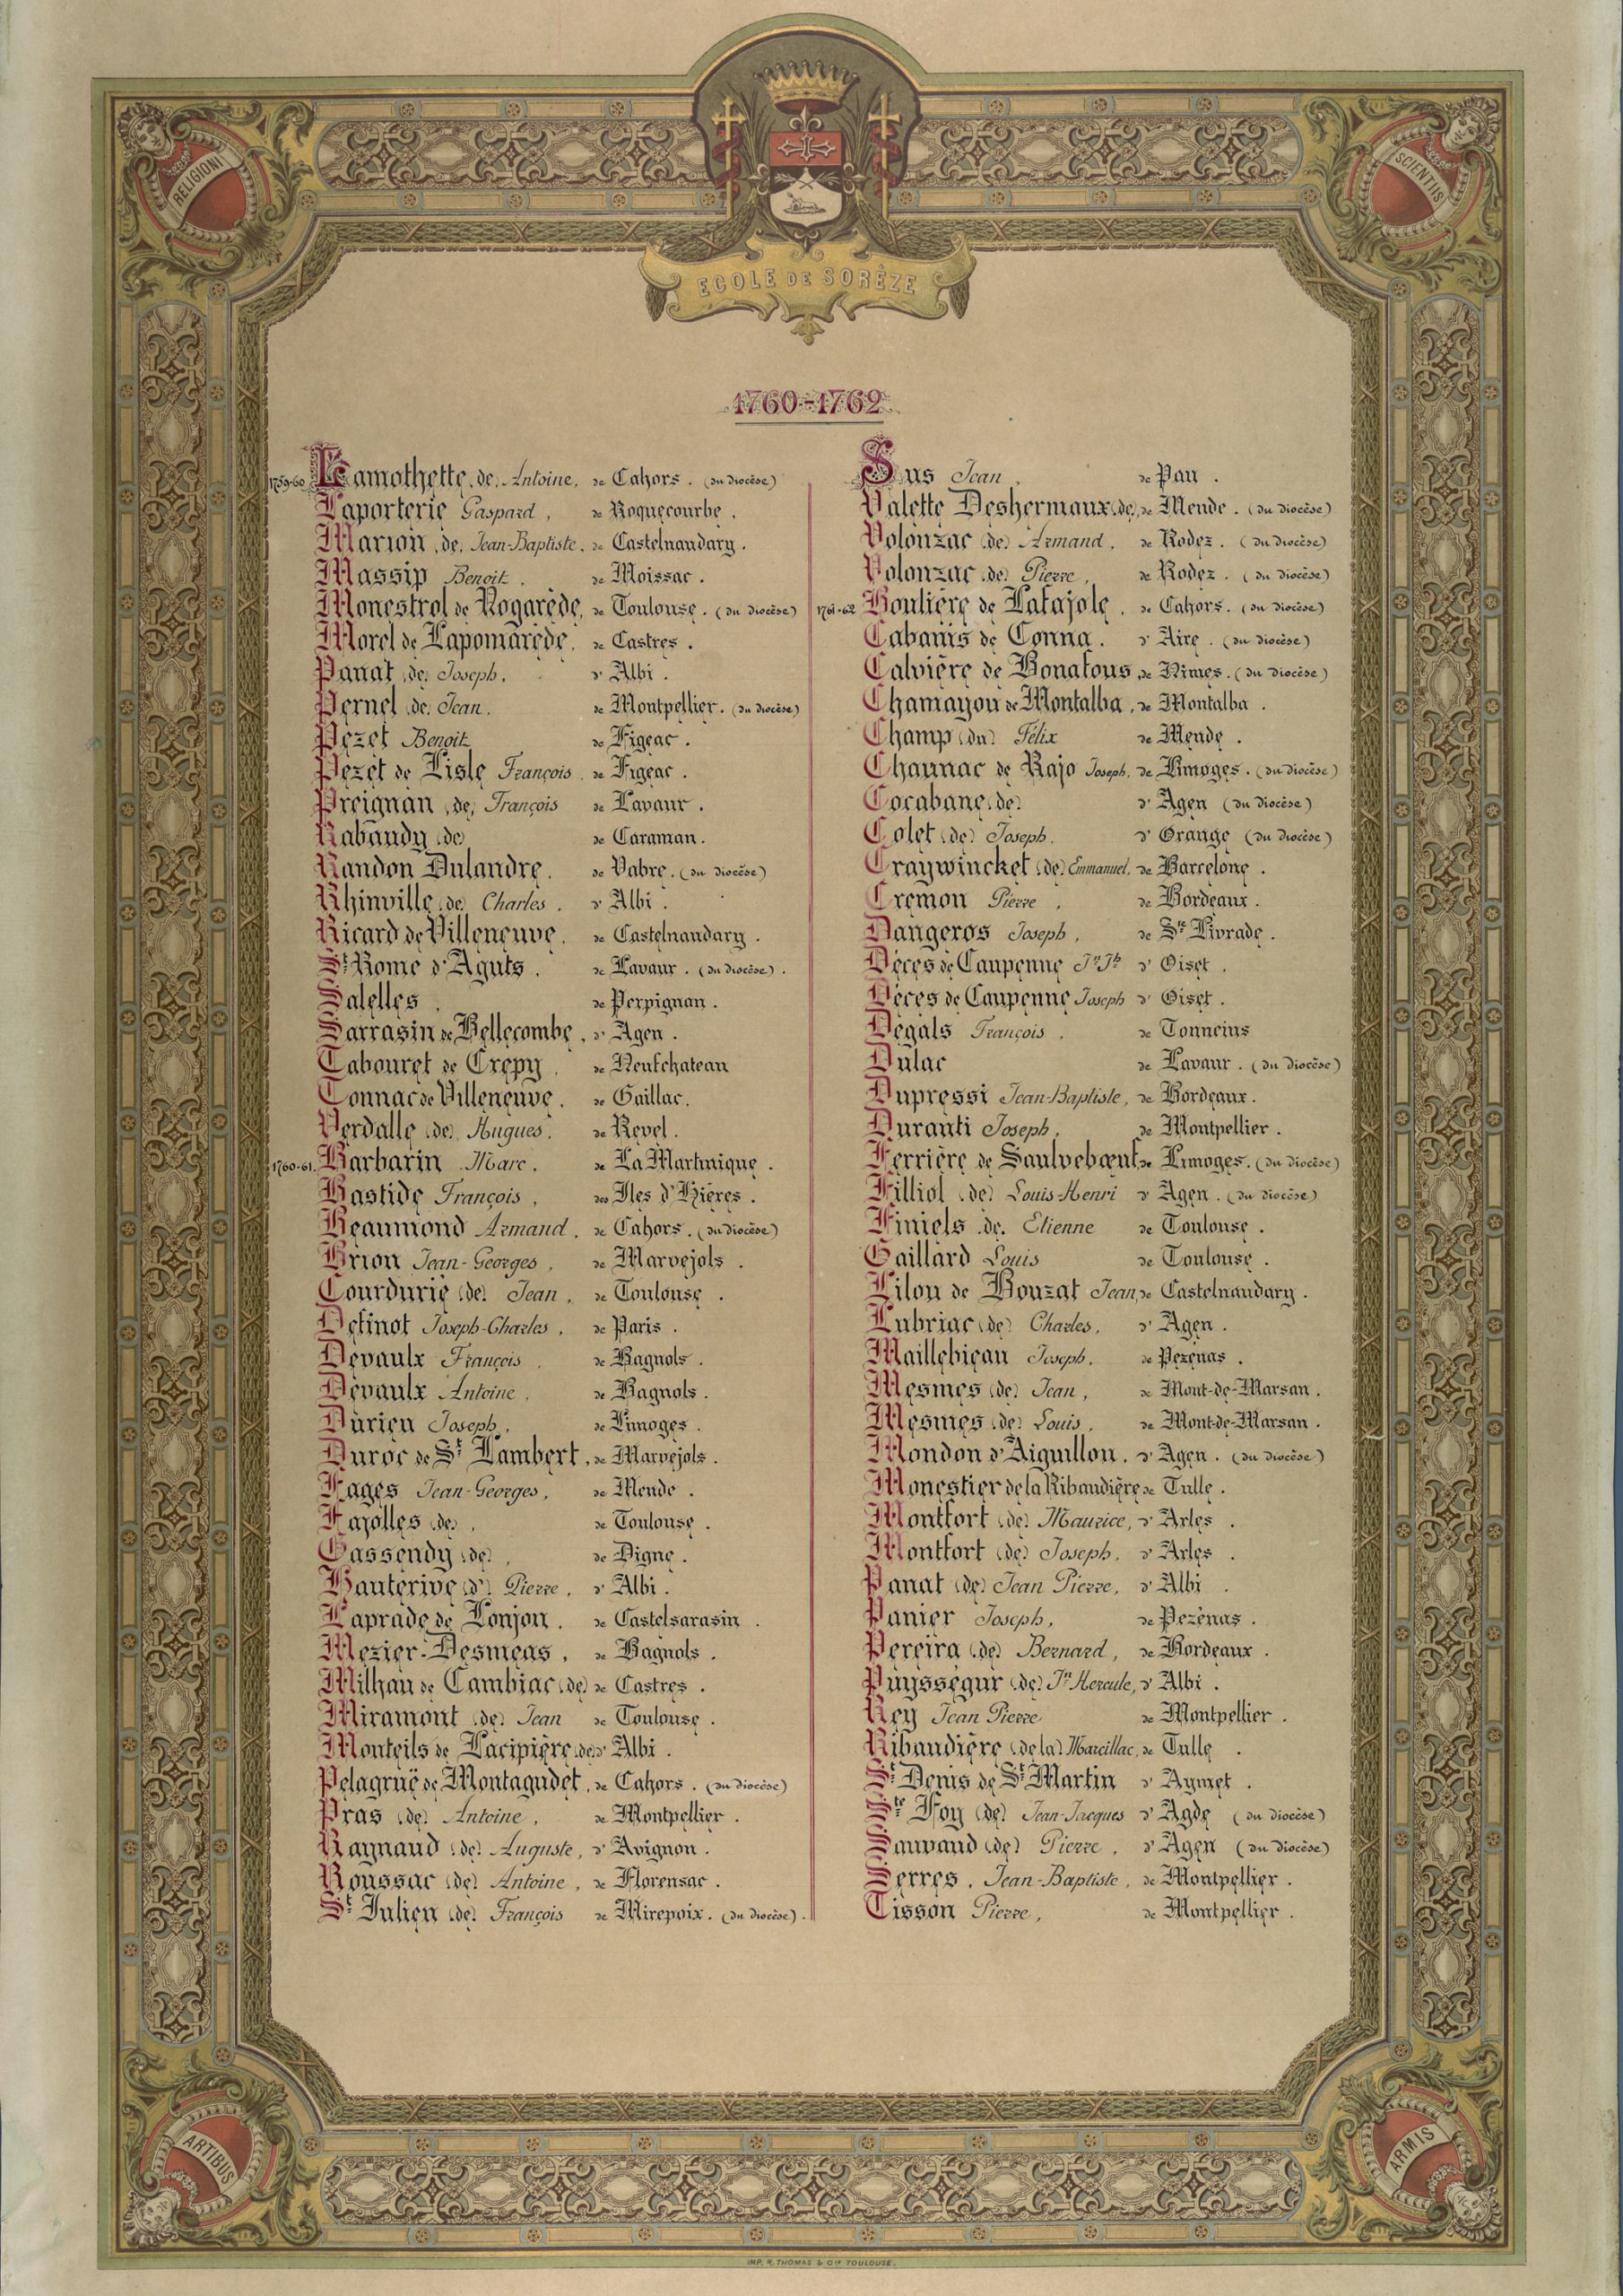 RELIGIONI
SCIENTIIS
ECOLE DE SORÈZE
1760-1762
1759-60 Lamothette (de) Antoine, de Cahors. (du diocèse)
Laporterie Gaspard, de Roquecourbe.
Marion (de) Jean-Baptiste, de Castelnaudary.
Massip Benoit, de Moissac.
Monestrol de Rogarède, de Toulouse. (du diocèse)
Morel de Lapomarède, de Castres.
Panat (de) Joseph, d'Albi.
Pernel (de) Jean, de Montpellier. (du diocèse)
Pezet Benoit de Figeac.
Pezet de Lisle François, de Figeac.
Preignan (de) François de Lavaur.
Rabaudy (de) de Caraman.
Randon Dulandre, de Vabre. (du diocèse)
Rhinville (de) Charles, d'Albi.
Ricard de Villeneuve, de Castelnaudary.
St Rome d'Aguts, de Lavaur. (du diocèse).
Salelles, de Perpignan.
Sarrasin de Bellecombe, d'Agen.
Tabouret de Crepy, de Neufchateau
Tonnac de Villeneuve, de Gaillac.
Verdalle (de) Hugues, de Revel.
1760-61. Barbarin Marc, de La Martinique.
Bastide François, des Iles d'Hières.
Beaumond Armand, de Cahors. (du diocèse)
Brion Jean-Georges, de Marvejols.
Courdurie (de) Jean, de Toulouse.
Definot Joseph-Charles, de Paris.
Devaulx François, de Bagnols.
Devaulx Antoine, de Bagnols.
Durieu Joseph, de Limoges.
Duroc de St Lambert, de Marvejols.
Fages Jean-Georges, de Mende.
Fajolles (de), de Toulouse.
Gassendy (de), de Digne.
Hauterive (d') Pierre, d'Albi.
Laprade de Lonjon, de Castelsarasin.
Mezier-Desmeas, de Bagnols.
Milhau de Cambiac (de) de Castres.
Miramont (de) Jean de Toulouse.
Monteils de Lacipière (de) d'Albi.
Pelagruë de Montagudet, de Cahors. (du diocèse)
Pras (de) Antoine, de Montpellier.
Raynaud (de) Auguste, d'Avignon.
Roussac (de) Antoine, de Florensac.
St Julien (de) François de Mirepoix. (du diocèse).
Sus Jean, de Pau.
Valette Deshermaux (de), de Mende. (du diocèse)
Volonzac (de) Armand, de Rodez. (du diocèse)
Volonzac (de) Pierre, de Rodez. (du diocèse)
1761-62 Boulière de Lafajole, de Cahors. (du diocèse)
Cabanis de Conna. d'Aire. (du diocèse)
Calvière de Bonafous, de Nimes. (du diocèse)
Chamayou de Montalba, de Montalba.
Champ (du) Félix de Mende.
Chaunac de Rajo Joseph, de Limoges. (du diocèse)
Cocabane (de) d'Agen (du diocèse)
Colet (de) Joseph, d'Orange (du diocèse)
Craywincket (de) Emmanuel, de Barcelone.
Cremon Pierre, de Bordeaux.
Dangeros Joseph, de Ste Livrade.
Déces de Caupenne Jn Jh d'Oiset.
Déces de Caupenne Joseph d'Oiset.
Degals François, de Tonneins
Dulac de Lavaur. (du diocèse)
Dupressi Jean-Baptiste, de Bordeaux.
Duranti Joseph, de Montpellier.
Ferrière de Saulvebœuf, de Limoges. (du diocèse)
Filliol (de) Louis-Henri d'Agen. (du diocèse)
Finiels (de) Etienne de Toulouse.
Gaillard Louis de Toulouse.
Lilou de Bouzat Jean, de Castelnaudary.
Lubriac (de) Charles, d'Agen.
Maillebieau Joseph, de Pezénas.
Mesmes (de) Jean, de Mont-de-Marsan.
Mesmes (de) Louis, de Mont-de-Marsan.
Mondon d'Aiguillon, d'Agen. (du diocèse)
Monestier de la Ribaudière de Tulle.
Montfort (de) Maurice, d'Arles.
Montfort (de) Joseph, d'Arles.
Panat (de) Jean Pierre, d'Albi.
Panier Joseph, de Pezénas.
Pereira (de) Bernard, de Bordeaux.
Puysségur (de) Jn Hercule, d'Albi.
Rey Jean Pierre de Montpellier.
Ribaudière (de la) Marcillac, de Tulle.
St Denis de St Martin d'Aymet.
Ste Foy (de) Jean-Jacques d'Agde (du diocèse)
Sauvaud (de) Pierre, d'Agen (du diocèse)
Serres, Jean-Baptiste, de Montpellier.
Tisson Pierre, de Montpellier.
ARTIBUS
ARMIS
IMP. R. THOMAS & Cie TOULOUSE.